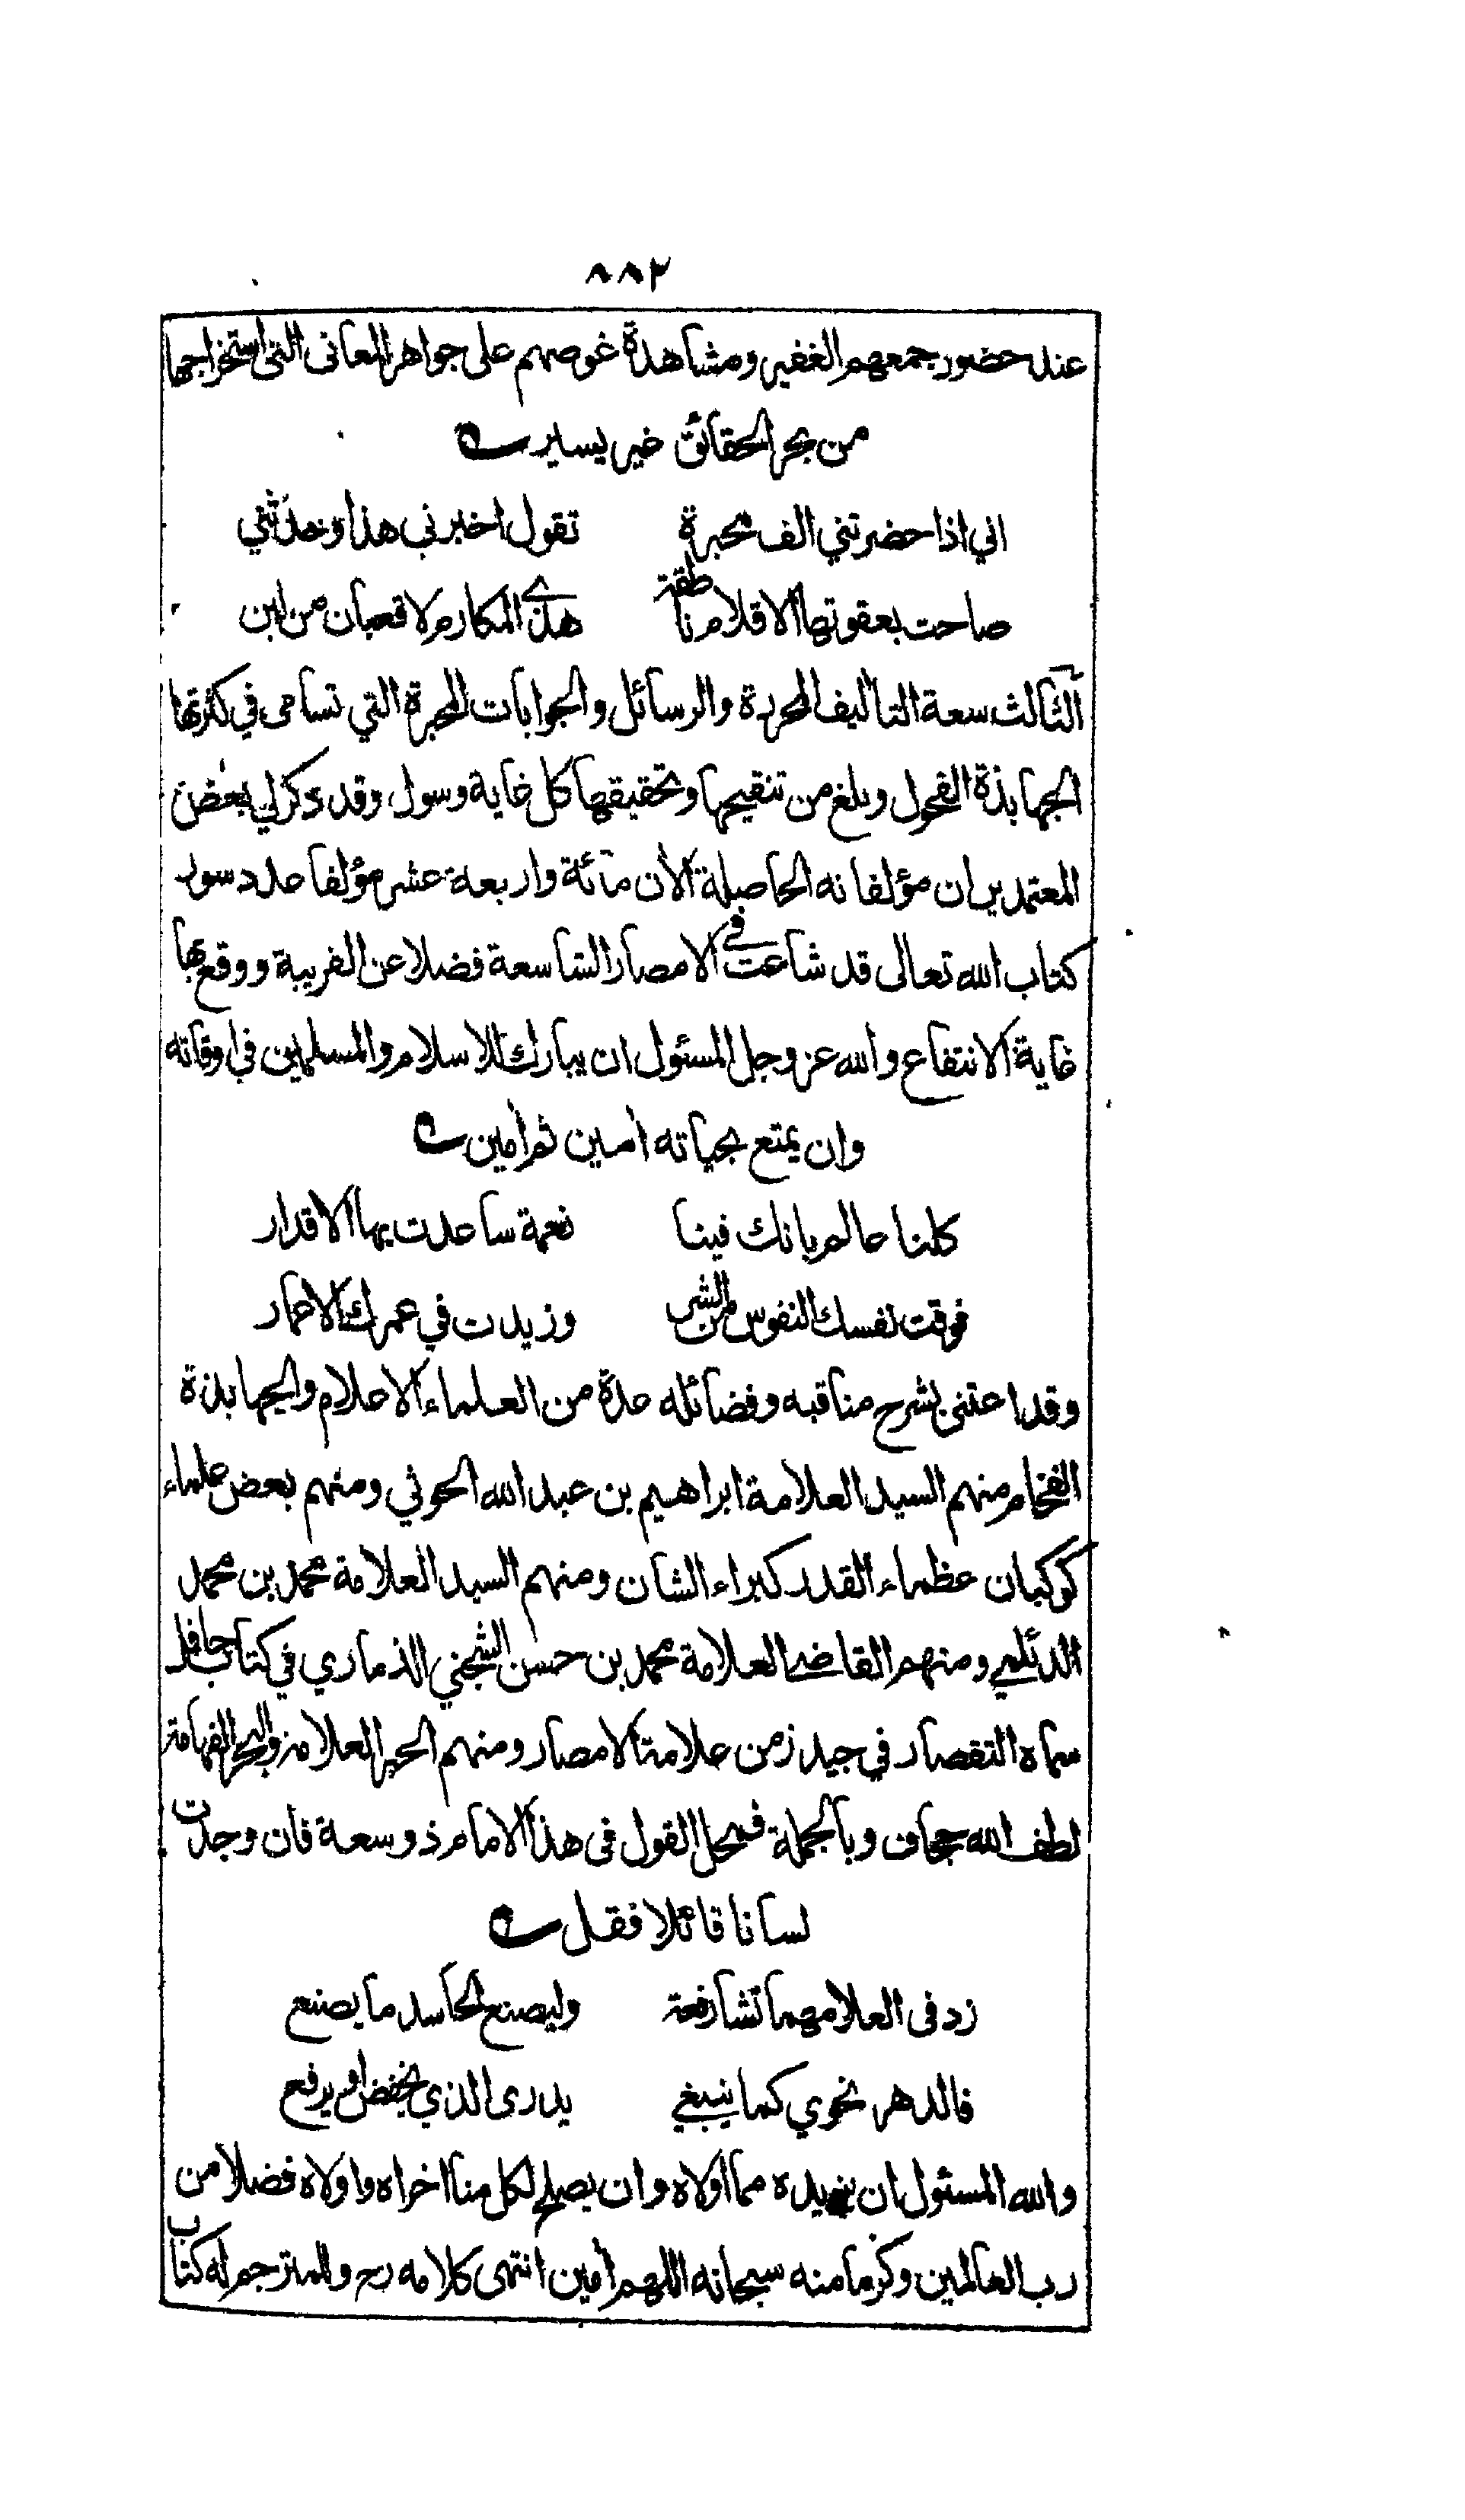 ٨٨٢
عند حضور جمعهم الغفير ومشاهدة غوصهم على جواهر المعانى التى استخراجها
من بحر الحقائق غير يسير
اني اذا حضرتني الف محبرة تقول اخبرني هذا وحدثني
صاحت بعقوتها الاقلام ناطقة هذي المكارم لا قعبان من لبن
الثالث سعة التأليف المحررة والرسائل والجوابات المحبرة التي تسامى في كثرتها
الجهابذة الفحول وبلغ من تنقيحها وتحقيقها كل غاية وسول وقد ذكر لي بعض
المعتمدين ان مؤلفاته الحاصلة الأن مائة واربعة عشر مؤلفا عدد سور
كتاب الله تعالى قد شاعت في الامصار الشاسعة فضلا عن القريبة ووقع بها
غاية الانتفاع والله عز وجل المسئول ان يبارك للاسلام والمسلمين في اوقاته
وان يمتع بحياته امين ثم أمين
كلنا عالم بانك فينا نعمة ساعدت بها الاقدار
فوقت نفسك النفوس من الشر وزيدت في عمرك الاعمار
وقد اعتنى بشرح مناقبه وفضائله عدة من العلماء الاعلام والجهابذة
الفخام منهم السيد العلامة ابراهيم بن عبد الله الحوثي ومنهم بعض علماء
كوكبان عظماء القدر كبراء الشان ومنهم السيد العلامة محمد بن محمد
الدئلمي ومنهم القاضي العلامة محمد بن حسن الشجني الذماري في كتاب حافل
سماه التقصار في جيد زمن علامة الامصار ومنهم الحبر العلامة والبحر الفهامة
لطف الله جحاف وبالجملة فمحل القول في هذا الامام ذو سعة فان وجدت
لسانا قائلا فقل
زد في العلا مهما تشا رفعة وليصنع الحاسد ما يصنع
فالدهر نحوي كما ينبغي يدرى الذي يخفض او يرفع
والله المسئول ان يزيده مما اولاه وان يصلح لكل منا اخراه واولاه فضلا من
رب العالمين وكرما منه سبحانه اللهم أمين انتهى كلامه رح وللمترجم له كتاب